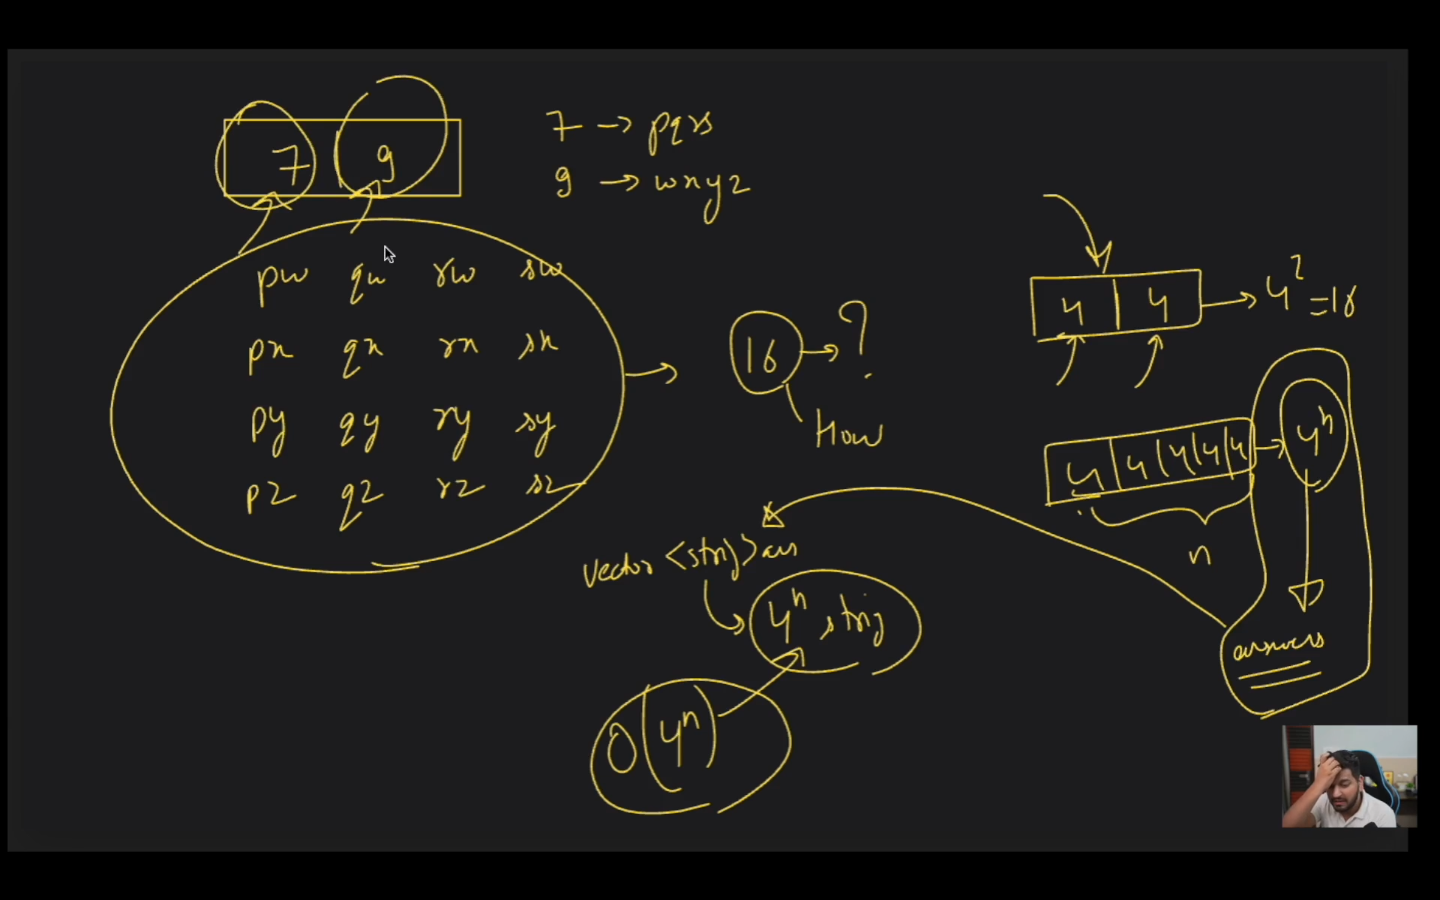 7 9
7 → pqrs
9 → wxyz
pw qw rw sw
px qx rx sx
py qy ry sy
pz qz rz sz
16 → ?
How
4 | 4 → 4² = 16
4 | 4 | 4 | 4 | 4 → 4ⁿ
n
answers
vector <string> ans
4ⁿ string
O(4ⁿ)